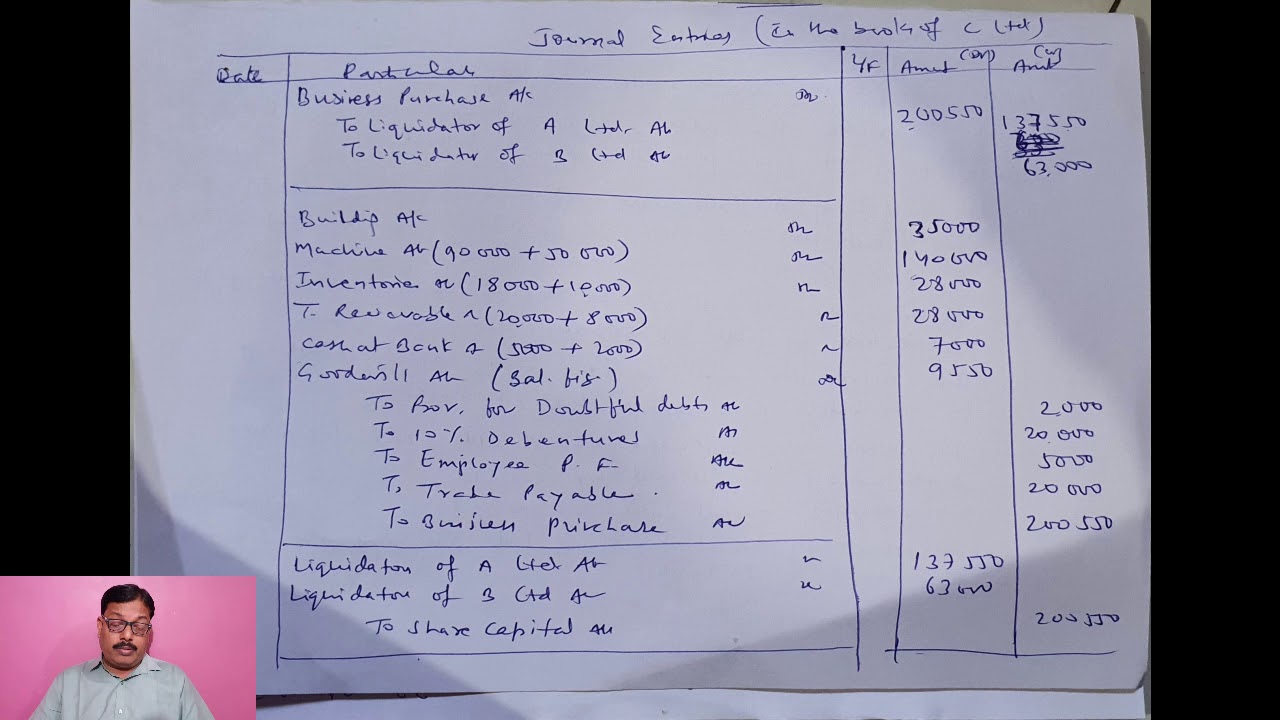 Journal Entries (In the book of C Ltd)
Date Particular L/F Amt (Dr) Amt (Cr)
Business Purchase A/c Dr. 200550
To Liquidator of A Ltd. A/c 137550
To Liquidator of B Ltd A/c 63,000
Building A/c Dr 35000
Machine A/c (90000 + 50000) Dr 140000
Inventories A/c (18000 + 10000) Dr 28000
T. Receivable A/c (20,000 + 8000) Dr 28000
Cash at Bank A/c (5000 + 2000) Dr 7000
Goodwill A/c (Bal. fig.) Dr 9550
To Prov. for Doubtful debts A/c 2,000
To 10% Debentures A/c 20,000
To Employee P. F A/c 5000
To Trade Payable. A/c 20000
To Business Purchase A/c 200550
Liquidator of A Ltd A/c Dr 137550
Liquidator of B Ltd A/c Dr 63000
To Share Capital A/c 200550